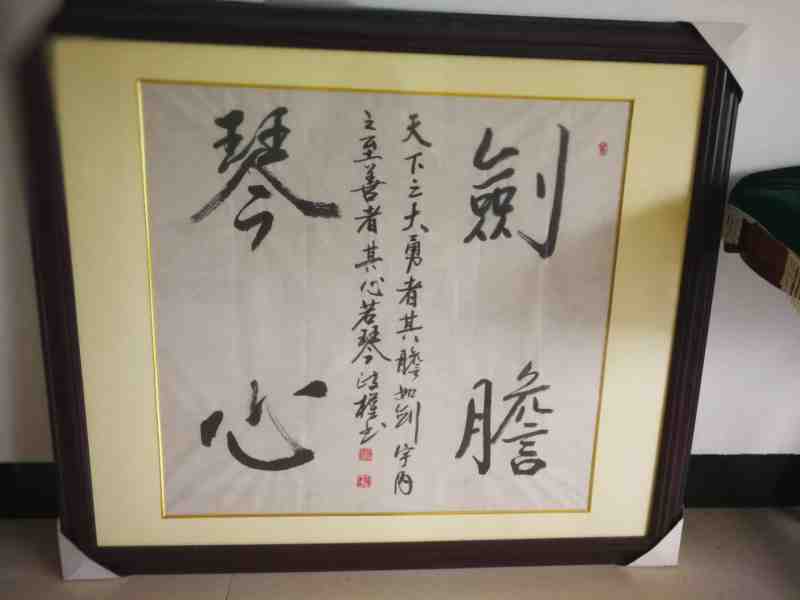 劍膽
天下之大勇者其膽如剑宇内
之至善者其心若琴
琴心